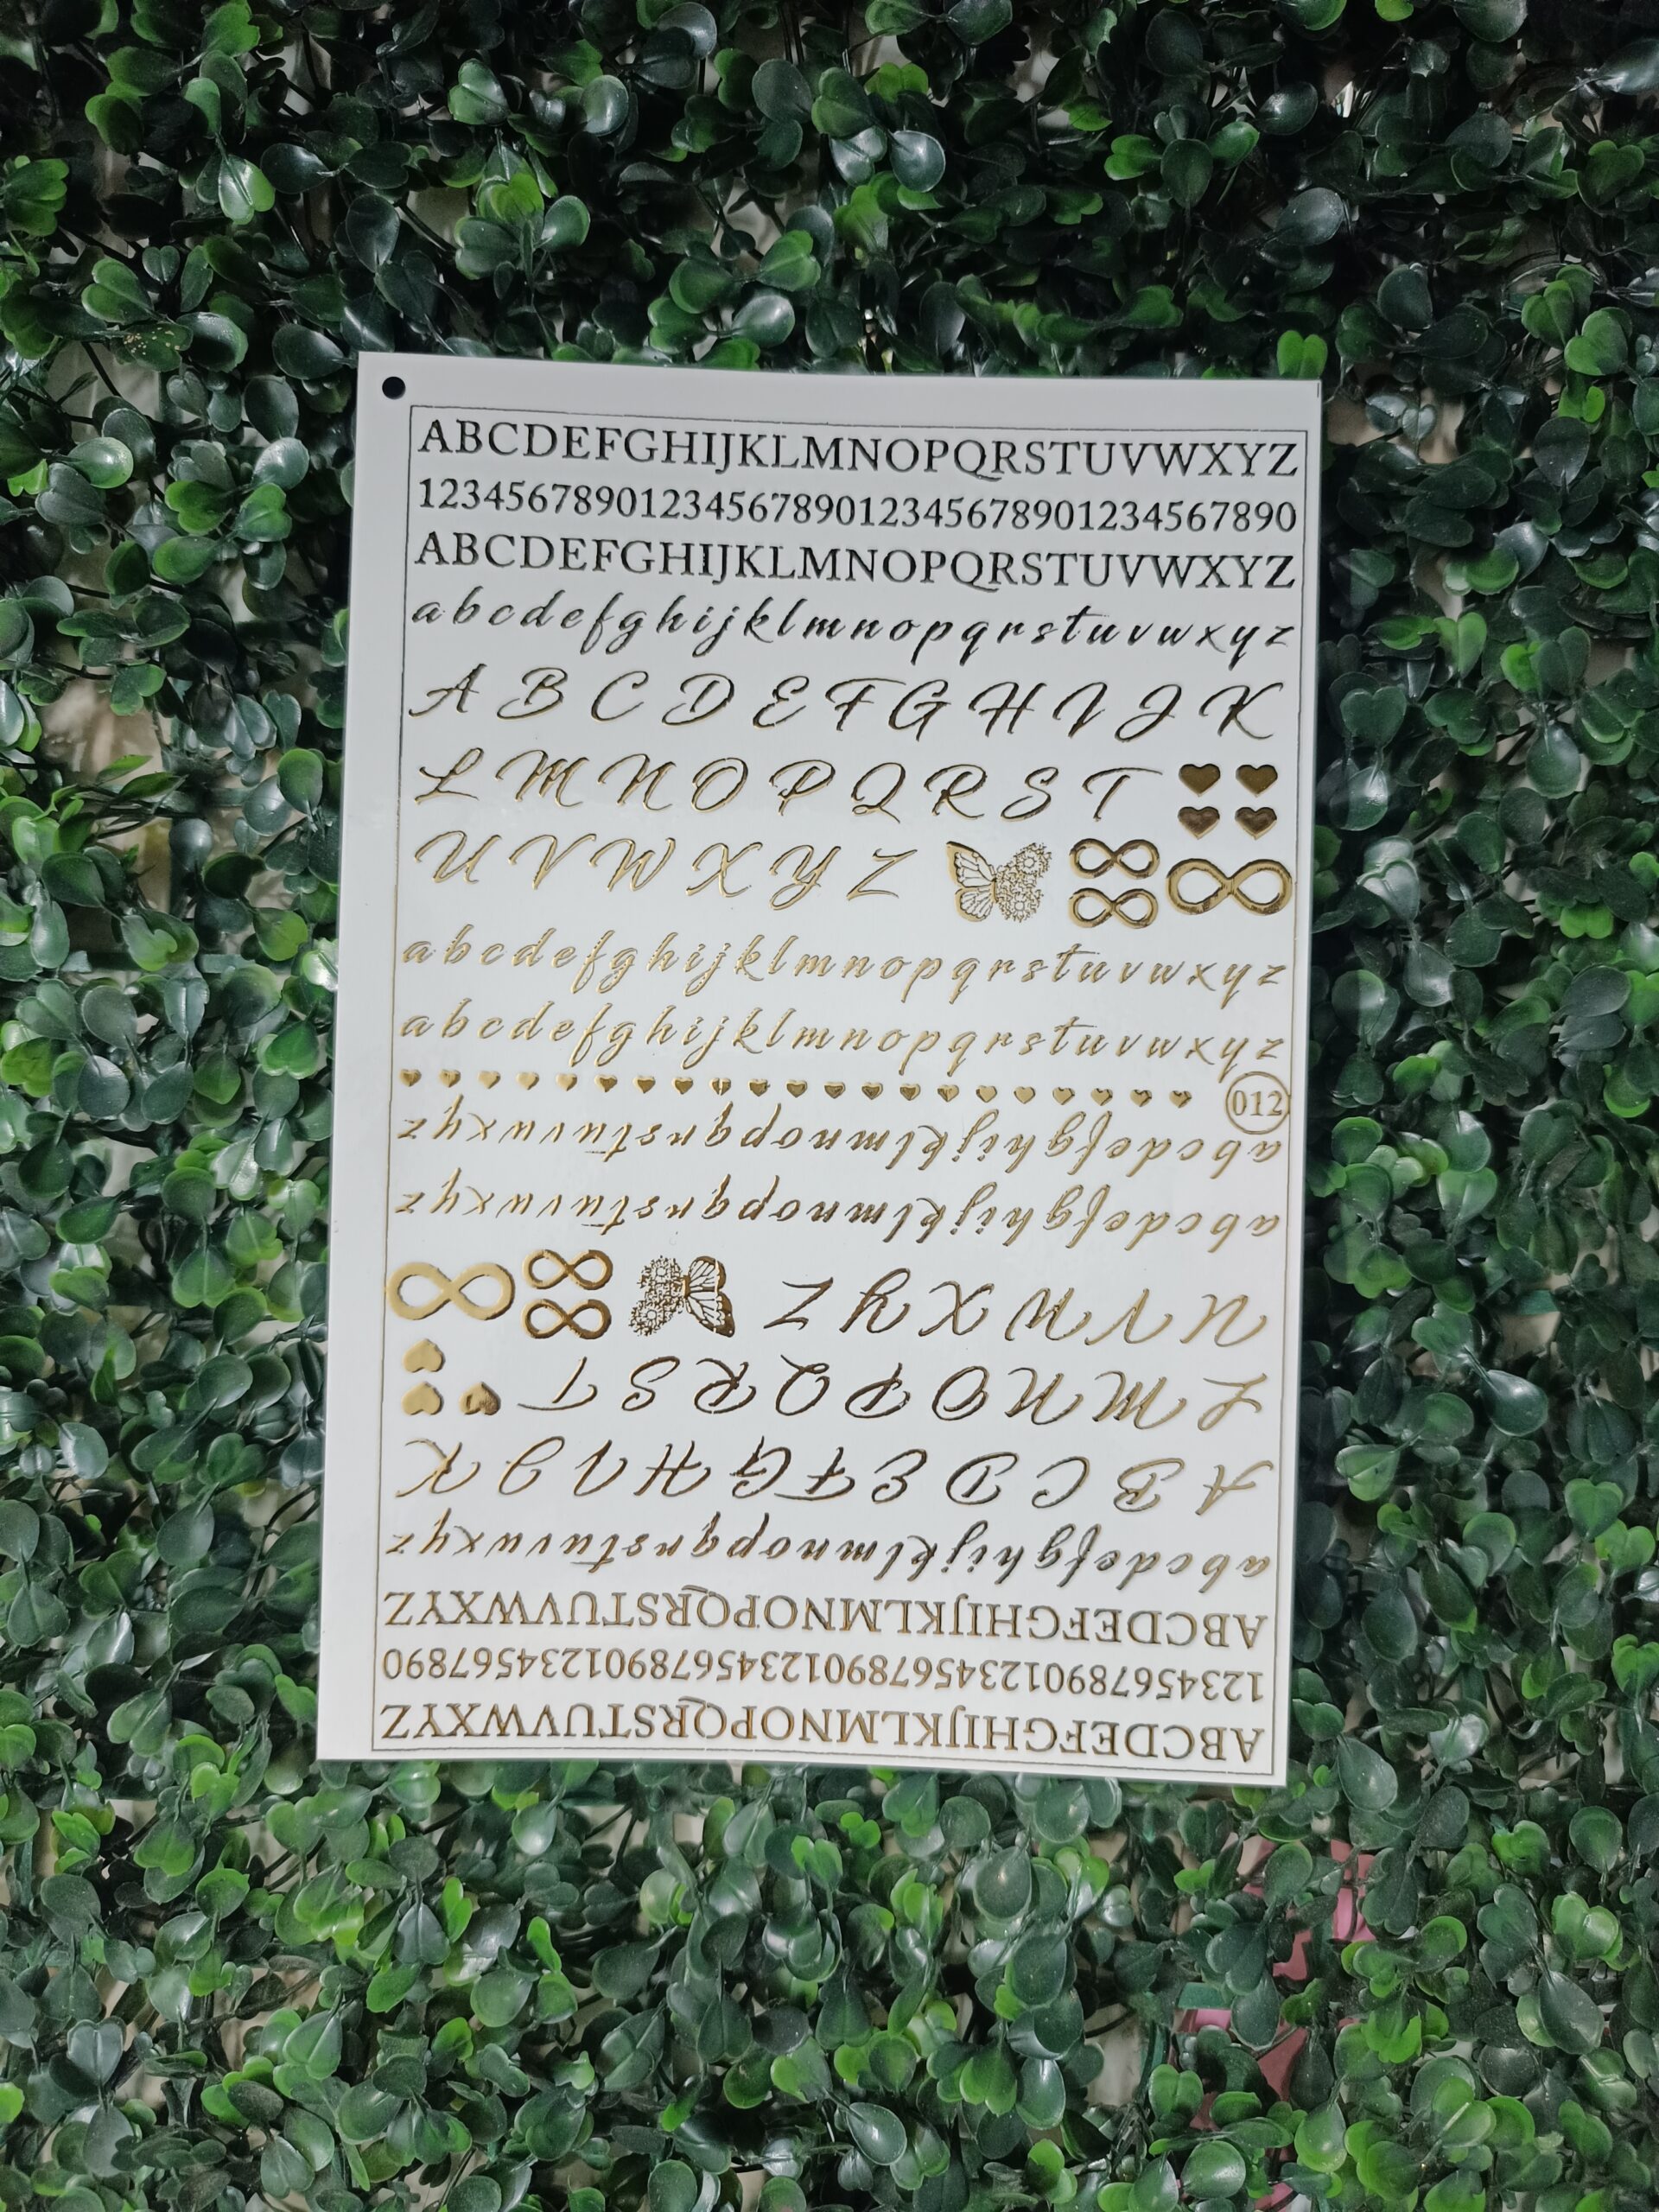 ABCDEFGHIJKLMNOPQRSTUVWXYZ
1234567890123456789012345678901234567890
ABCDEFGHIJKLMNOPQRSTUVWXYZ
abcdefghijklmnopqrstuvwxyz
ABCDEFGHIJK
LMNOPQRST
UVWXYZ
abcdefghijklmnopqrstuvwxyz
abcdefghijklmnopqrstuvwxyz
012
abcdefghijklmnopqrstuvwxyz
abcdefghijklmnopqrstuvwxyz
UVWXYZ
LMNOPQRST
ABCDEFGHIJK
abcdefghijklmnopqrstuvwxyz
ABCDEFGHIJKLMNOPQRSTUVWXYZ
1234567890123456789012345678901234567890
ABCDEFGHIJKLMNOPQRSTUVWXYZ